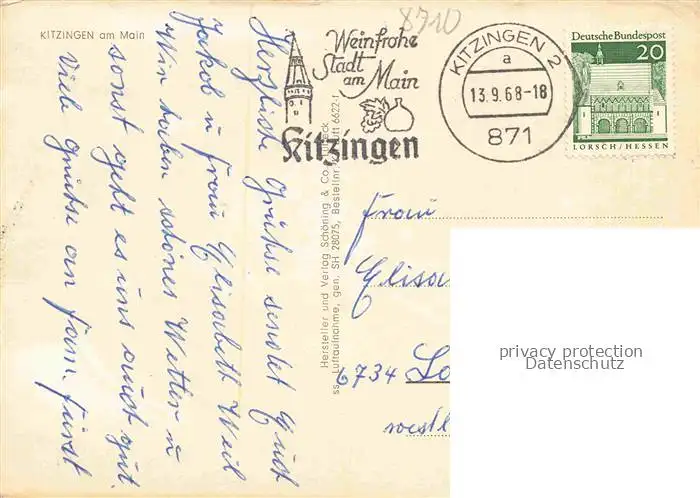 8710
KITZINGEN am Main
Weinfrohe
Stadt
am Main
Kitzingen
KITZINGEN 2
a
13.9.68-18
871
Deutsche Bundespost
20
LORSCH/HESSEN
Herzliche Grühse sendet Euch
Jakob u Frau Elisabeth Weil
Wir haben schönes Wetter u
sonst geht es uns auch gut.
Viele Grühse an Fam. Fürst
Hersteller und Verlag Schöning & Co., Lübeck
ss. Luftaufnahme, gen. SH 28075, Bestellnr. Luft 6622-1
Frau
Elisa
6734 Lo
westl
privacy protection
Datenschutz